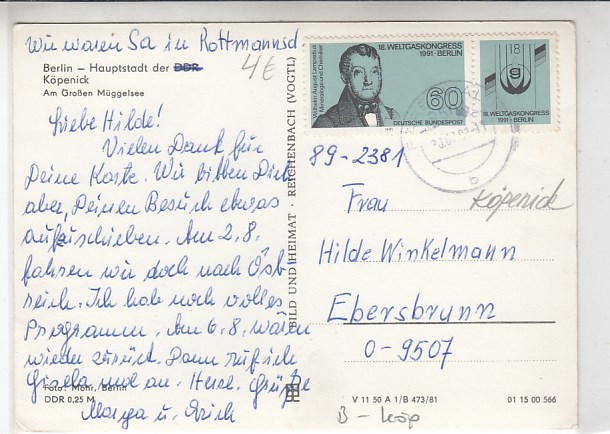 Wir waren Sa in Rottmannsd
4€
Berlin – Hauptstadt der DDR
Köpenick
Am Großen Müggelsee
Liebe Hilde!
Vielen Dank für
Deine Karte. Wir bitten Dich
aber, Deinen Besuch etwas
aufzuschieben. Am 2.8.
fahren wir doch nach Öst
reich. Ich hab noch volles
Programm. Am 6.8. wären
wieder zurück. Dann ruf ich
Gisela mal an. Herzl. Grüße
Foto: Mohr, Berlin
DDR 0,25 M
Marga u. Erich
BILD UND HEIMAT · REICHENBACH (VOGTL)
Wilhelm August Lampadius
Mineraloge und Chemiker
18. WELTGASKONGRESS
1991 · BERLIN
60
DEUTSCHE BUNDESPOST
18
g
18. WELTGASKONGRESS
1991 · BERLIN
b
89-2381
Frau
Köpenick
Hilde Winkelmann
Ebersbrunn
O-9507
V 11 50 A 1/B 473/81
01 15 00 566
B – Köp